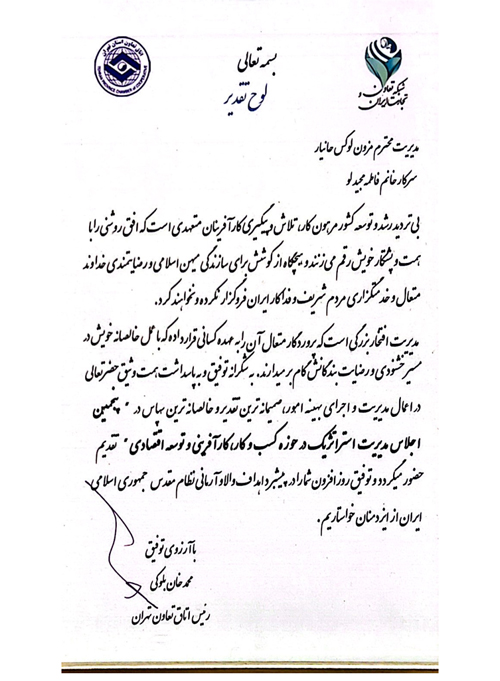 اتاق تعاون استان تهران
TEHRAN PROVINCE CHAMBER OF COOPERATIVE
شبکه تعاون و
تجارت ایران
بسمه تعالی
لوح تقدیر
مدیریت محترم مزون لوکس حانیار
سرکار خانم فاطمه مجیدلو
بی تردید رشد و توسعه کشور مرهون کار، تلاش و پیگیری کارآفرینان متعهدی است که افق روشنی را با
همت و پشتکار خویش رقم می زنند و هیچگاه از کوشش برای سازندگی میهن اسلامی و رضایتمندی خداوند
متعال و خدمتگزاری مردم شریف و فداکار ایران فروگذار نکرده و نخواهند کرد.
مدیریت افتخار بزرگی است که پروردگار متعال آن را به عهده کسانی قرار داده که با عمل خالصانه خویش در
مسیر خشنودی و رضایت بندگانش گام بر میدارند. به شکرانه توفیق و به پاسداشت همت وثیق حضرتعالی
در اعمال مدیریت و اجرای بهینه امور، صمیمانه ترین تقدیر و خالصانه ترین سپاس در " پنجمین
اجلاس مدیریت استراتژیک در حوزه کسب و کار، کارآفرینی و توسعه اقتصادی " تقدیم
حضور میگردد و توفیق روز افزون شما را در پیشبرد اهداف والا و آرمانی نظام مقدس جمهوری اسلامی
ایران از ایزد منان خواستاریم.
با آرزوی توفیق
محمد خان بلوکی
رئیس اتاق تعاون تهران